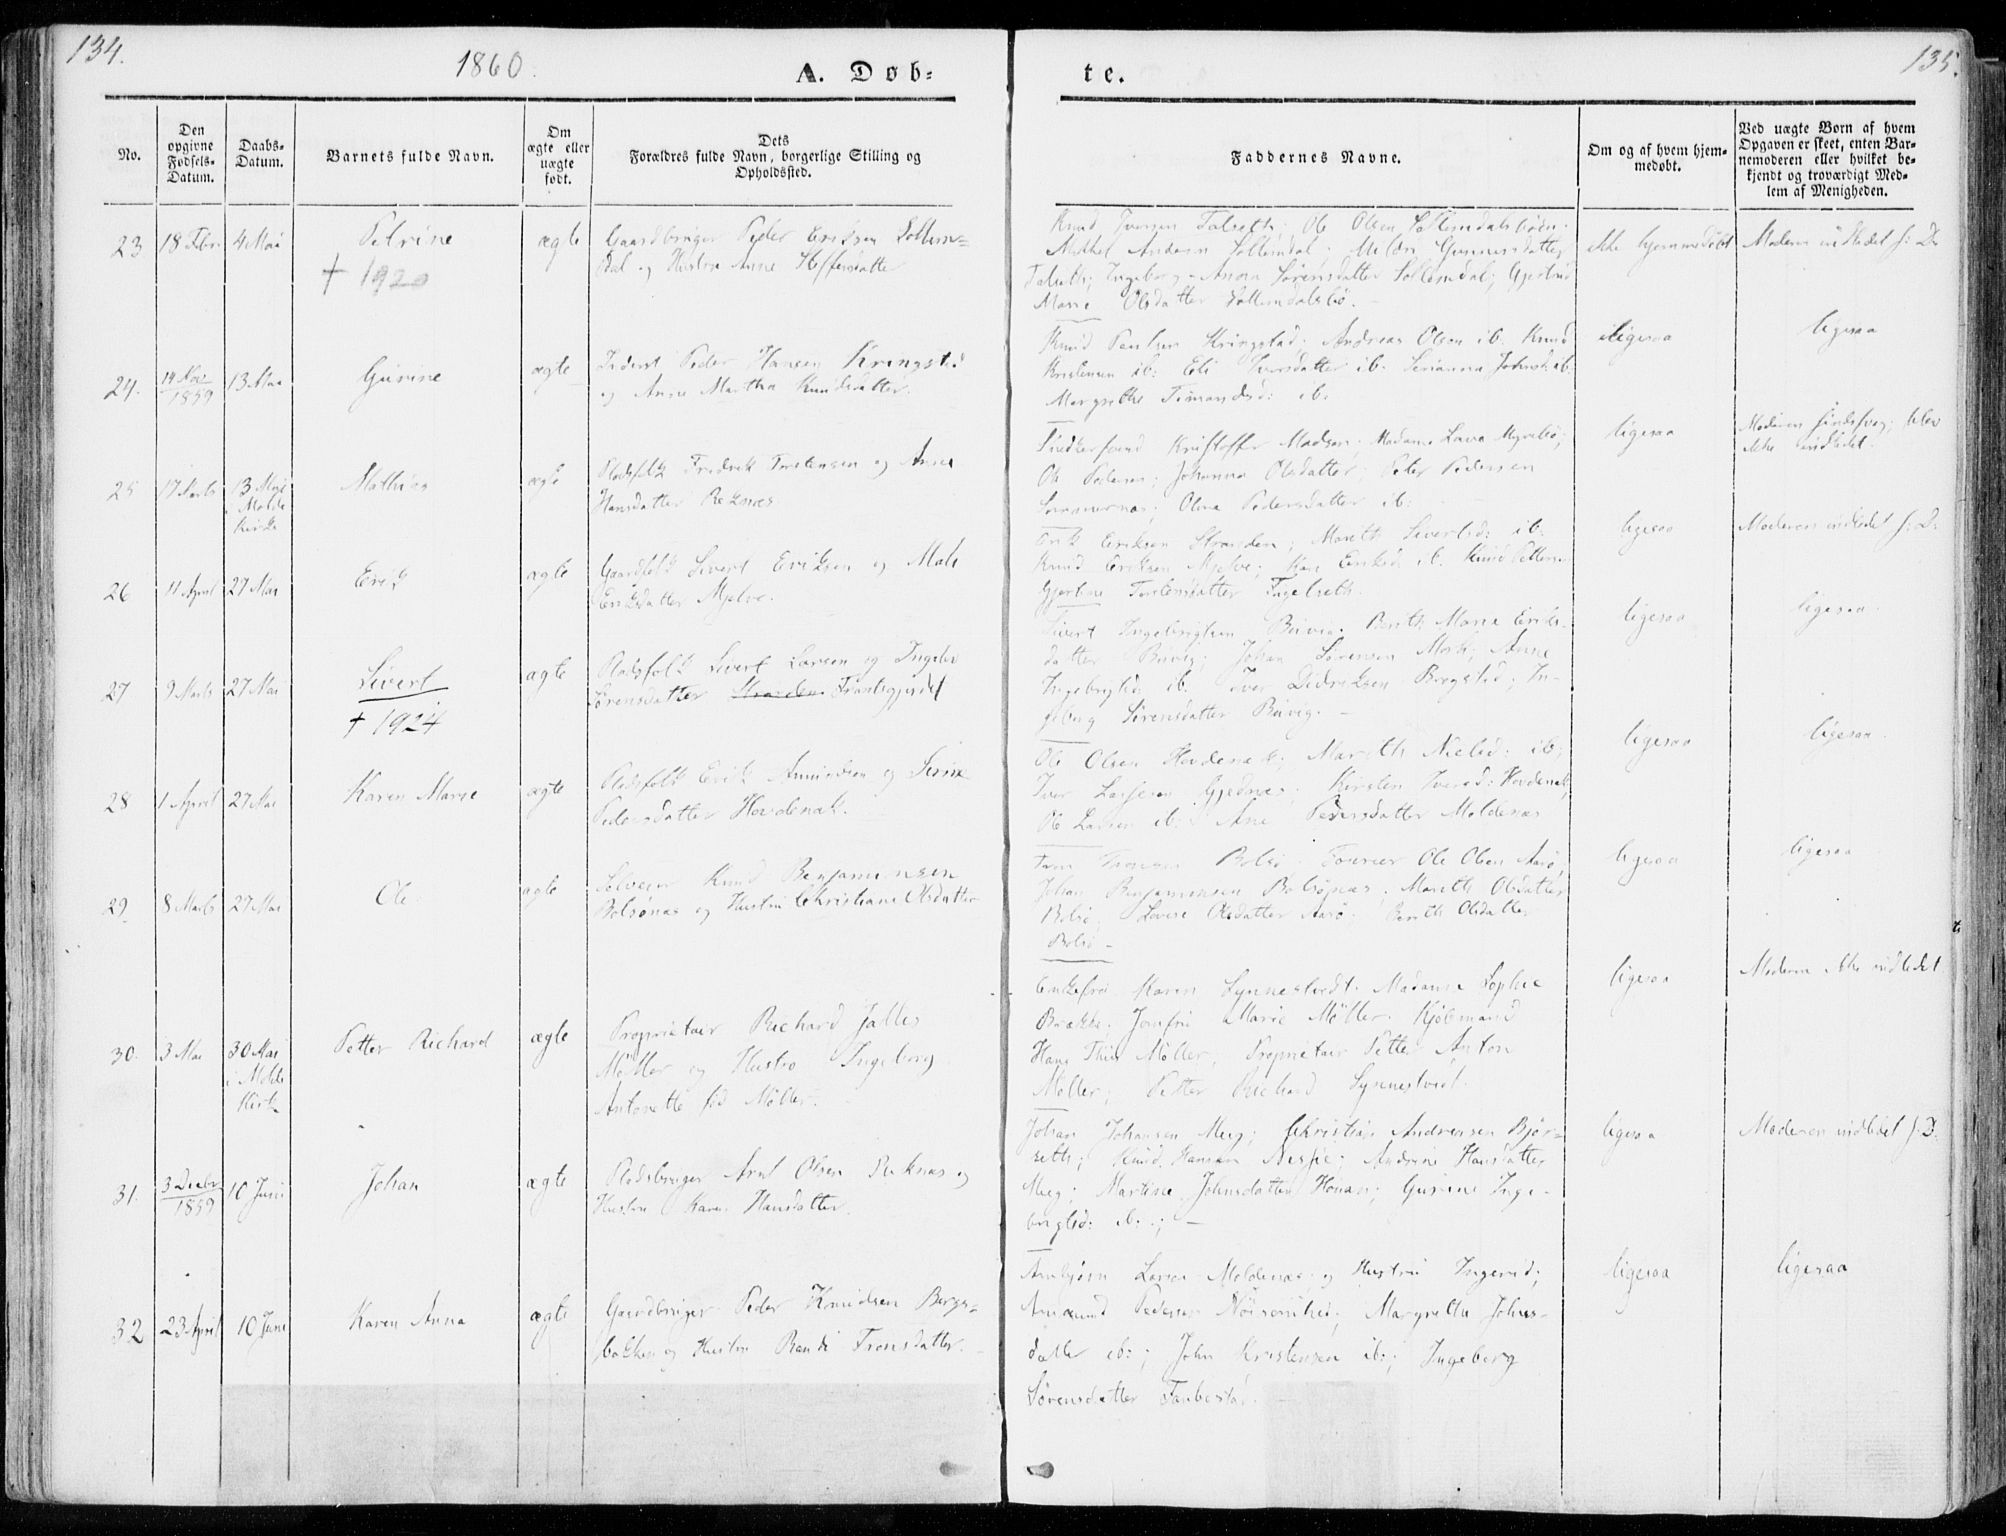 134.
1860.
A. Døb-
te.
135.
No.
Den
opgivne
Fødsels-
Datum.
Daabs-
Datum.
Barnets fulde Navn.
Om
ægte eller
uægte
født.
Dets
Forældres fulde Navn, borgerlige Stilling og
Opholdssted.
Faddernes Navne.
Om og af hvem hjem-
medøbt.
Ved uægte Børn af hvem
Opgaven er skeet, enten Bar-
nemoderen eller hvilket be-
kjendt og troværdigt Med-
lem af Menigheden.
23
18 Febr
4 Mai
Petrine
† 1920
ægte
Gaardbruger Peder Eriksen Sollem-
dal og Hustru Anne Steffensdatter
Knud Iversen Talseth; Ole Olsen Sollemdalsbøen
Mikkel Andersen Sollemdal; Gunnersdatter
Talseth; Ingeborg Anna Sørensdatter Sollemdal; Gjertrud
Marie Olsdatter Sollemdalsbø.
ikke hjemmedøbt
Moderen indledet s: D:
24.
14 Nov
1859
13 Mai
Gurine
ægte
Inderst Peder Hansen Kringstad
og Anne Martha Knudsdatter.
Knud Kringstad; Andreas Olsen ib. Knud
Kristensen ib: Eli Iversdatter ib. Serianna Johnsd: ib.
Margrethe ib.
ligesaa
ligesaa
25
17 Marts
13 Mai
i Molde
Kirke
Mathias
ægte
Pladsfolk Fredrik Torstensen og Anne
Hansdatter Reknes
Kristoffer Madsen; Madame Lava Myrebø;
Ole Pedersen; Johanna Olsdatter, Peter Pedersen
Olina Pedersdatter ib:
ligesaa
Moderen blev
ikke indledet.
26
11 April
27 Mai
Erik
ægte
Gaardfolk Sivert Eriksen og Mali
Eriksdatter Mjelve.
Erik Eriksen Stranden; Marith Sivertsd: ib:
Knud Eriksen Mjelve; Kari Eriksd: ib. Knud Pettersen
Gjertine Torstensdatter Fugelseth.
ligesaa
Moderen indledet s: D:
27
9 Marts
27 Mai
Sivert
† 1924
ægte
Pladsfolk Sivert Larsen og Ingebor
Sørensdatter Stranden Frantsgjerdet
Sivert Ingebrigtsen Buvig. Berith Maria Eriks-
datter Buvig; Johan Sørensen Mork; Anne
Ingebrigtsd: ib. Iver Didriksen Bergstad; In-
geborg Sørensdatter Buvig. –
ligesaa
ligesaa.
28
1 April
27 Mai
Karen Marie
ægte
Pladsfolk Erik Amundsen og Serine
Pedersdatter Hovdenak.
Ole Olsen Hovdenak; Marith Nielsd: ib;
Iver Larsen Gjednes; Kirsten Iversd: Hovdenak;
Ole Larsen ib: Ane Pedersdatter Moldenes
ligesaa
ligesaa.
29
8 Marts
27 Mai
Ole
ægte
Selveier Knud Benjaminsen
Bolsønes og Hustru Christiane Olsdatter
Bolsø; Fourier Ole Olsen Aarø;
Johan Benjaminsen Bolsønes; Marith Olsdatter
Bolsø; Lovise Olsdatter Aarø; Berith Olsdatter
Bolsø –
ligesaa
ligesaa
30.
3 Mai
30 Mai
i Molde
Kirke
Petter Richard
ægte
Proprietair Richard Jalles
Møller og Hustru Ingeborg
Antonette fød Møller.
Enkefru Karen Lynnestvedt. Madame Sophie
Brække. Jomfru Marie Møller. Kjøbmand
Hans Thiis Møller; Proprietair Petter Anton
Møller; Petter Richard Lynnestvedt.
ligesaa
Moderen ikke indledet
31.
3 Decbr
1859
10 Juni
Johan
ægte
Pladsbruger Arnt Olsen Reknæs og
Hustru Karen Hansdatter.
Johan Johansen Meeg; Christian Andreasen Bjør-
seth; Knud Hansen; Andrine Hansdatter
Meeg; Martine Johnsdatter; Gurine Inge-
brigtsd: ib.; –
ligesaa
Moderen indledet s: D:
32
23 April
10 Juni
Karen Anna
ægte
Gaardbruger Peder Knudsen Bergs-
bakken og Hustru Randi Tronsdatter.
Arnbjørn Larsen Moldenæs og Hustru Ingerid;
Amund Pedersen; Margrethe Johns-
datter ib:; John Kristensen ib:; Ingeborg
Sørensdatter Fanbostad.
ligesaa
ligesaa